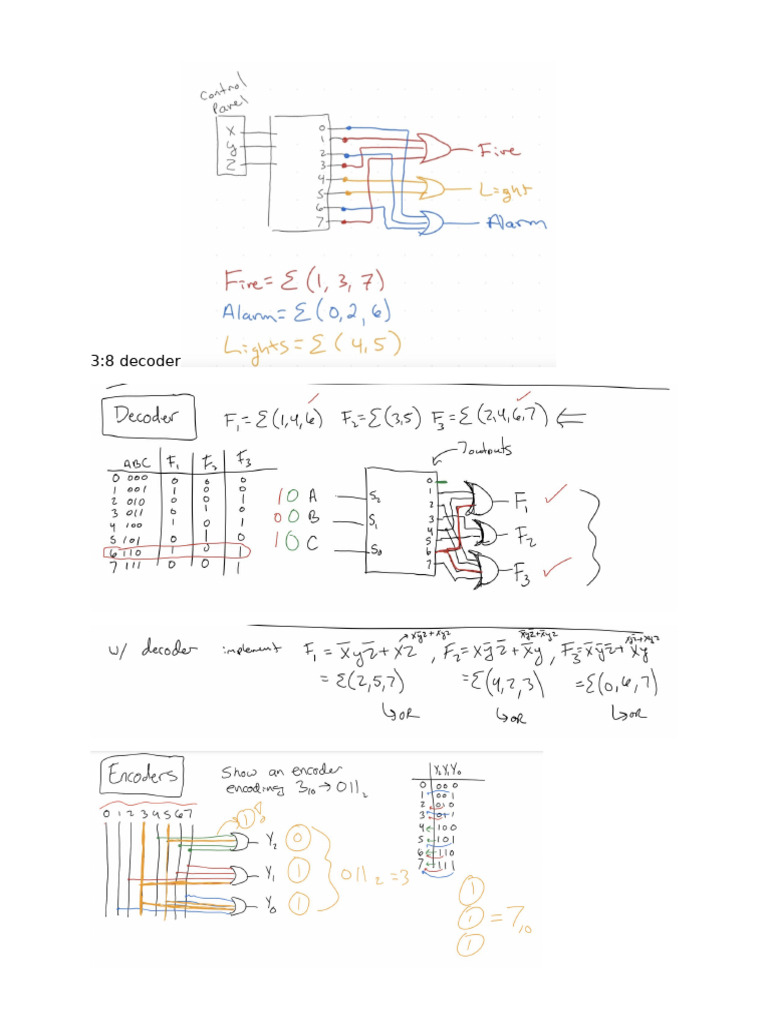 Control
Panel
X
Y
Z
0
1
2
3
4
5
6
7
Fire
Light
Alarm
Fire = Σ(1, 3, 7)
Alarm = Σ(0, 2, 6)
Lights = Σ(4, 5)
3:8 decoder
Decoder
F₁ = Σ(1,4,6) F₂ = Σ(3,5) F₃ = Σ(2,4,6,7) ⇐
7 outputs
ABC F₁ F₂ F₃
0 000 0 0 0
1 001 1 0 0
2 010 0 0 1
3 011 0 1 0
4 100 1 0 1
5 101 0 1 0
6 110 1 0 1
7 111 0 0 1
1 0 A S₂
0 0 B S₁
1 0 C S₀
0
1
2
3
4
5
6
7
F₁
F₂
F₃
w/ decoder implement F₁ = x̄yz̄ + xz , F₂ = xȳz̄ + x̄y , F₃ = x̄ȳz̄ + xy
= Σ(2,5,7) = Σ(4,2,3) = Σ(0,6,7)
↳OR ↳OR ↳OR
Encoders
Show an encoder
encoding 3₁₀ → 011₂
0 1 2 3 4 5 6 7
Y₂ 0
Y₁ 1
Y₀ 1
011₂ = 3
Y₂Y₁Y₀
0 000
1 001
2 010
3 011
4 100
5 101
6 110
7 111
1
1 = 7₁₀
1